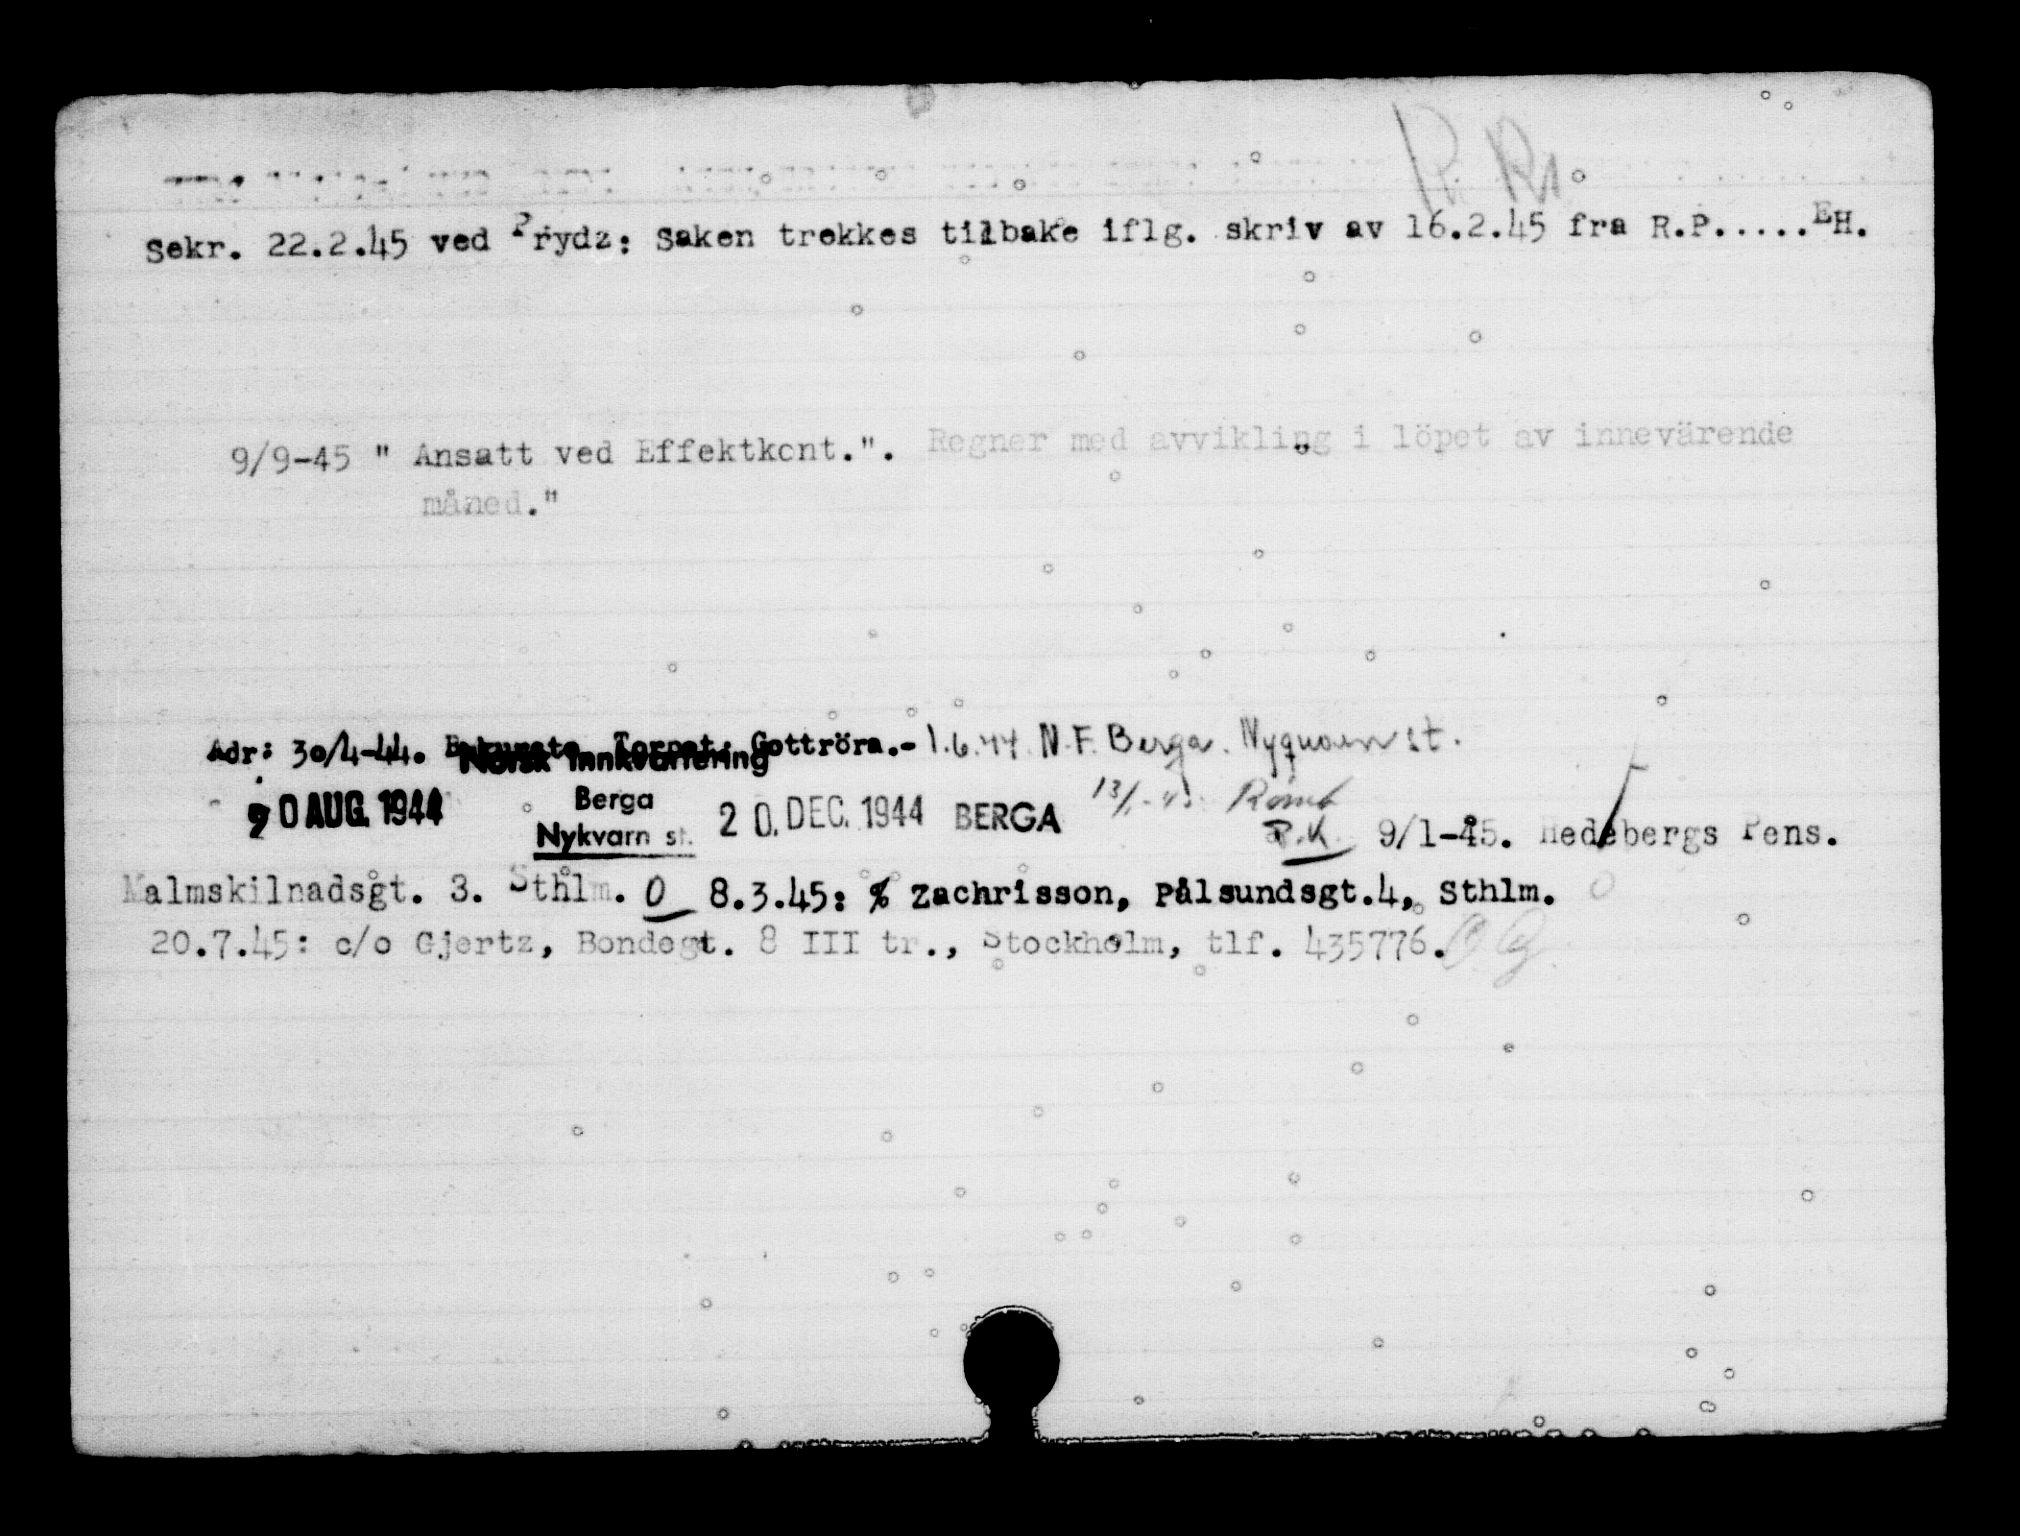 Sekr. 22.2.45 ved Prydz: Saken trekkes tilbake iflg. skriv av 16.2.45 fra R.P.....EH.
9/9-45 " Ansatt ved Effektkont.". Regner med avvikling i löpet av innevärende
måned."
Adr: 30/4-44. Torpet, Gottröra.- 1.6.44 N.F. Berga. Nyquarn st.
Norsk Innkvartering
20 AUG. 1944 Berga 20. DEC. 1944 BERGA
Nykvarn st.
P.K. 9/1-45. Hedebergs Pens.
Malmskilnadsgt. 3. Sthlm. O 8.3.45: % Zachrisson, Pålsundsgt.4, Sthlm.
20.7.45: c/o Gjertz, Bondegt. 8 III tr., Stockholm, tlf. 435776.